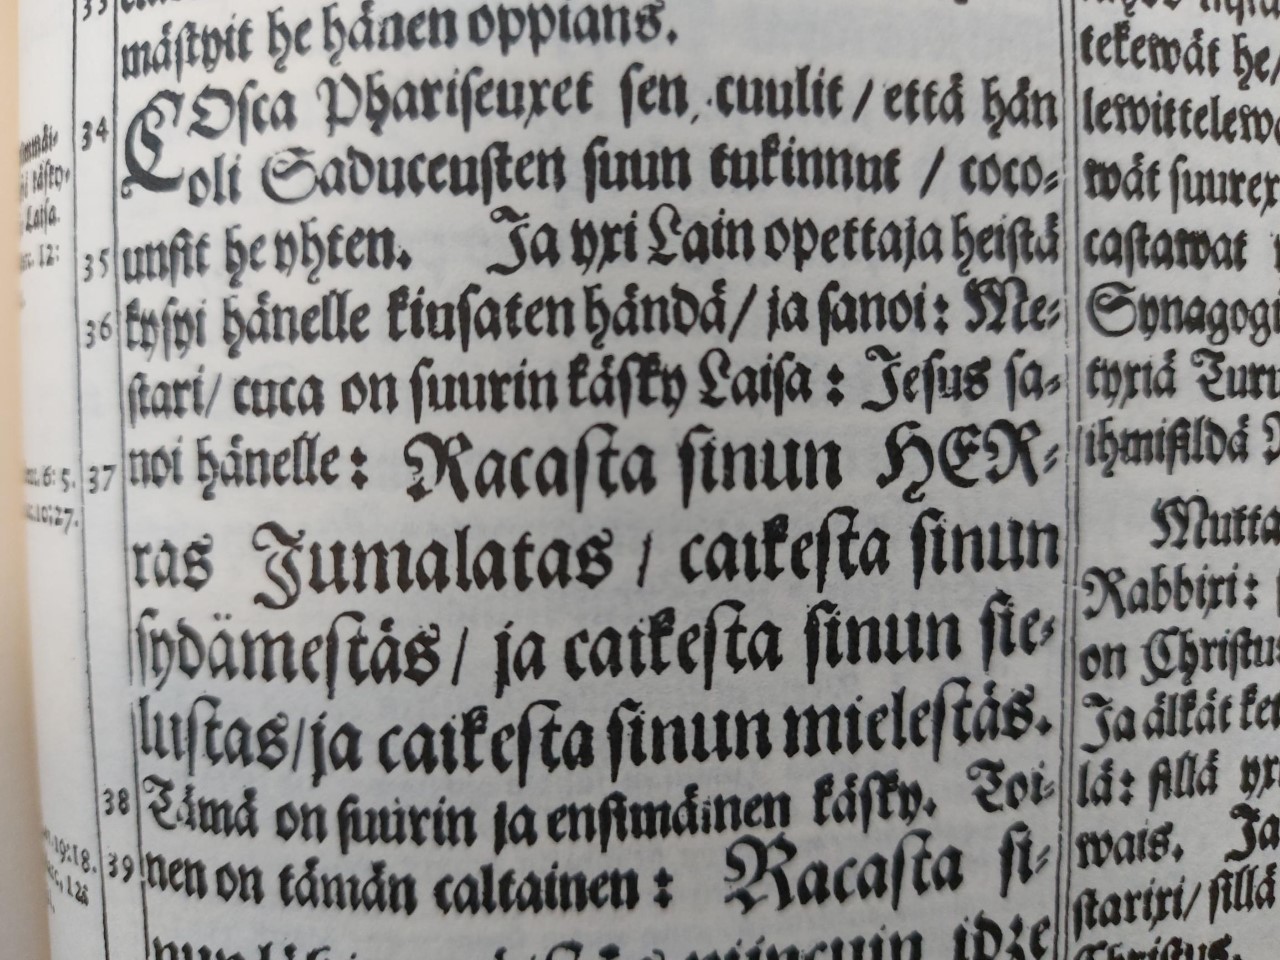 33
mästyit he hänen oppians.
34 COsca Phariseuxet sen cuulit / että hän
oli Saduceusten suun tukinnut / coco⸗
35 unsit he yhten. Ja yxi Lain opettaja heistä
36 kysyi hänelle kiusaten händä / ja sanoi: Me⸗
stari / cuca on suurin käsky Laisa: Jesus sa⸗
37 noi hänelle: Racasta sinun HER⸗
ras Jumalatas / caikesta sinun
sydämestäs / ja caikesta sinun sie⸗
lustas / ja caikesta sinun mielestäs.
38 Tämä on suurin ja ensimäinen käsky. Toi⸗
39 nen on tämän caltainen: Racasta si⸗
idze
Latsa.
12:
6: 5.
10:27.
19:18.
tekewät he /
lewittelewä
wät suurex
castawat
Synagogi
kyxiä Turu
ihmisildä
Mutta
Rabbixi:
on Christus
Ja älkät
lä: sillä yx
wais. Ja
starixi / sillä
Christus.